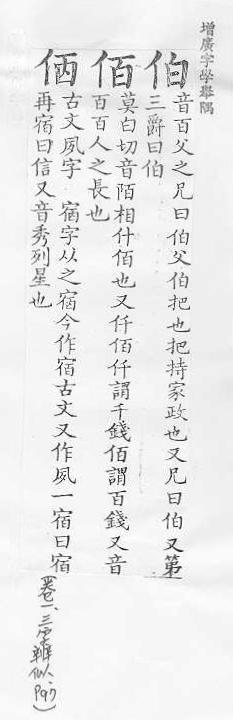 增廣字學舉隅
伯 音百父之兄曰伯父伯把也把持家政也又兄曰伯又第
三爵曰伯
佰 莫白切音陌相什佰也又仟佰仟謂千錢佰謂百錢又音
百百人之長也
㑉 古文夙字 宿字从之宿今作宿古文又作夙一宿曰宿
再宿曰信又音秀列星也
(卷一、三字辨似、P97)